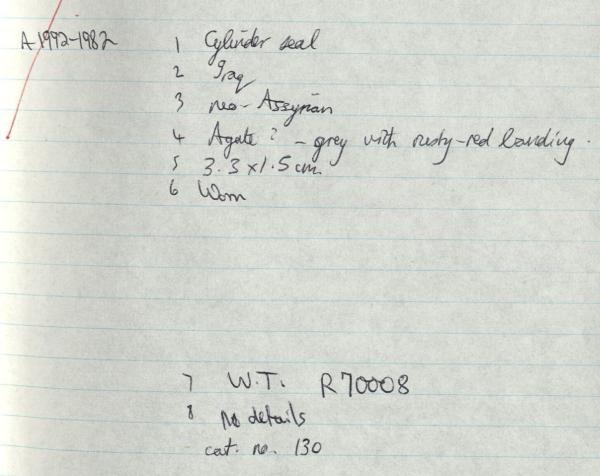 A 1992-1982
1 Cylinder seal
2 Iraq
3 neo-Assyrian
4 Agate? - grey with rusty-red banding.
5 3.3 x 1.5 cm
6 Worn
7 W.T. R70008
8 No details
cat. no. 130